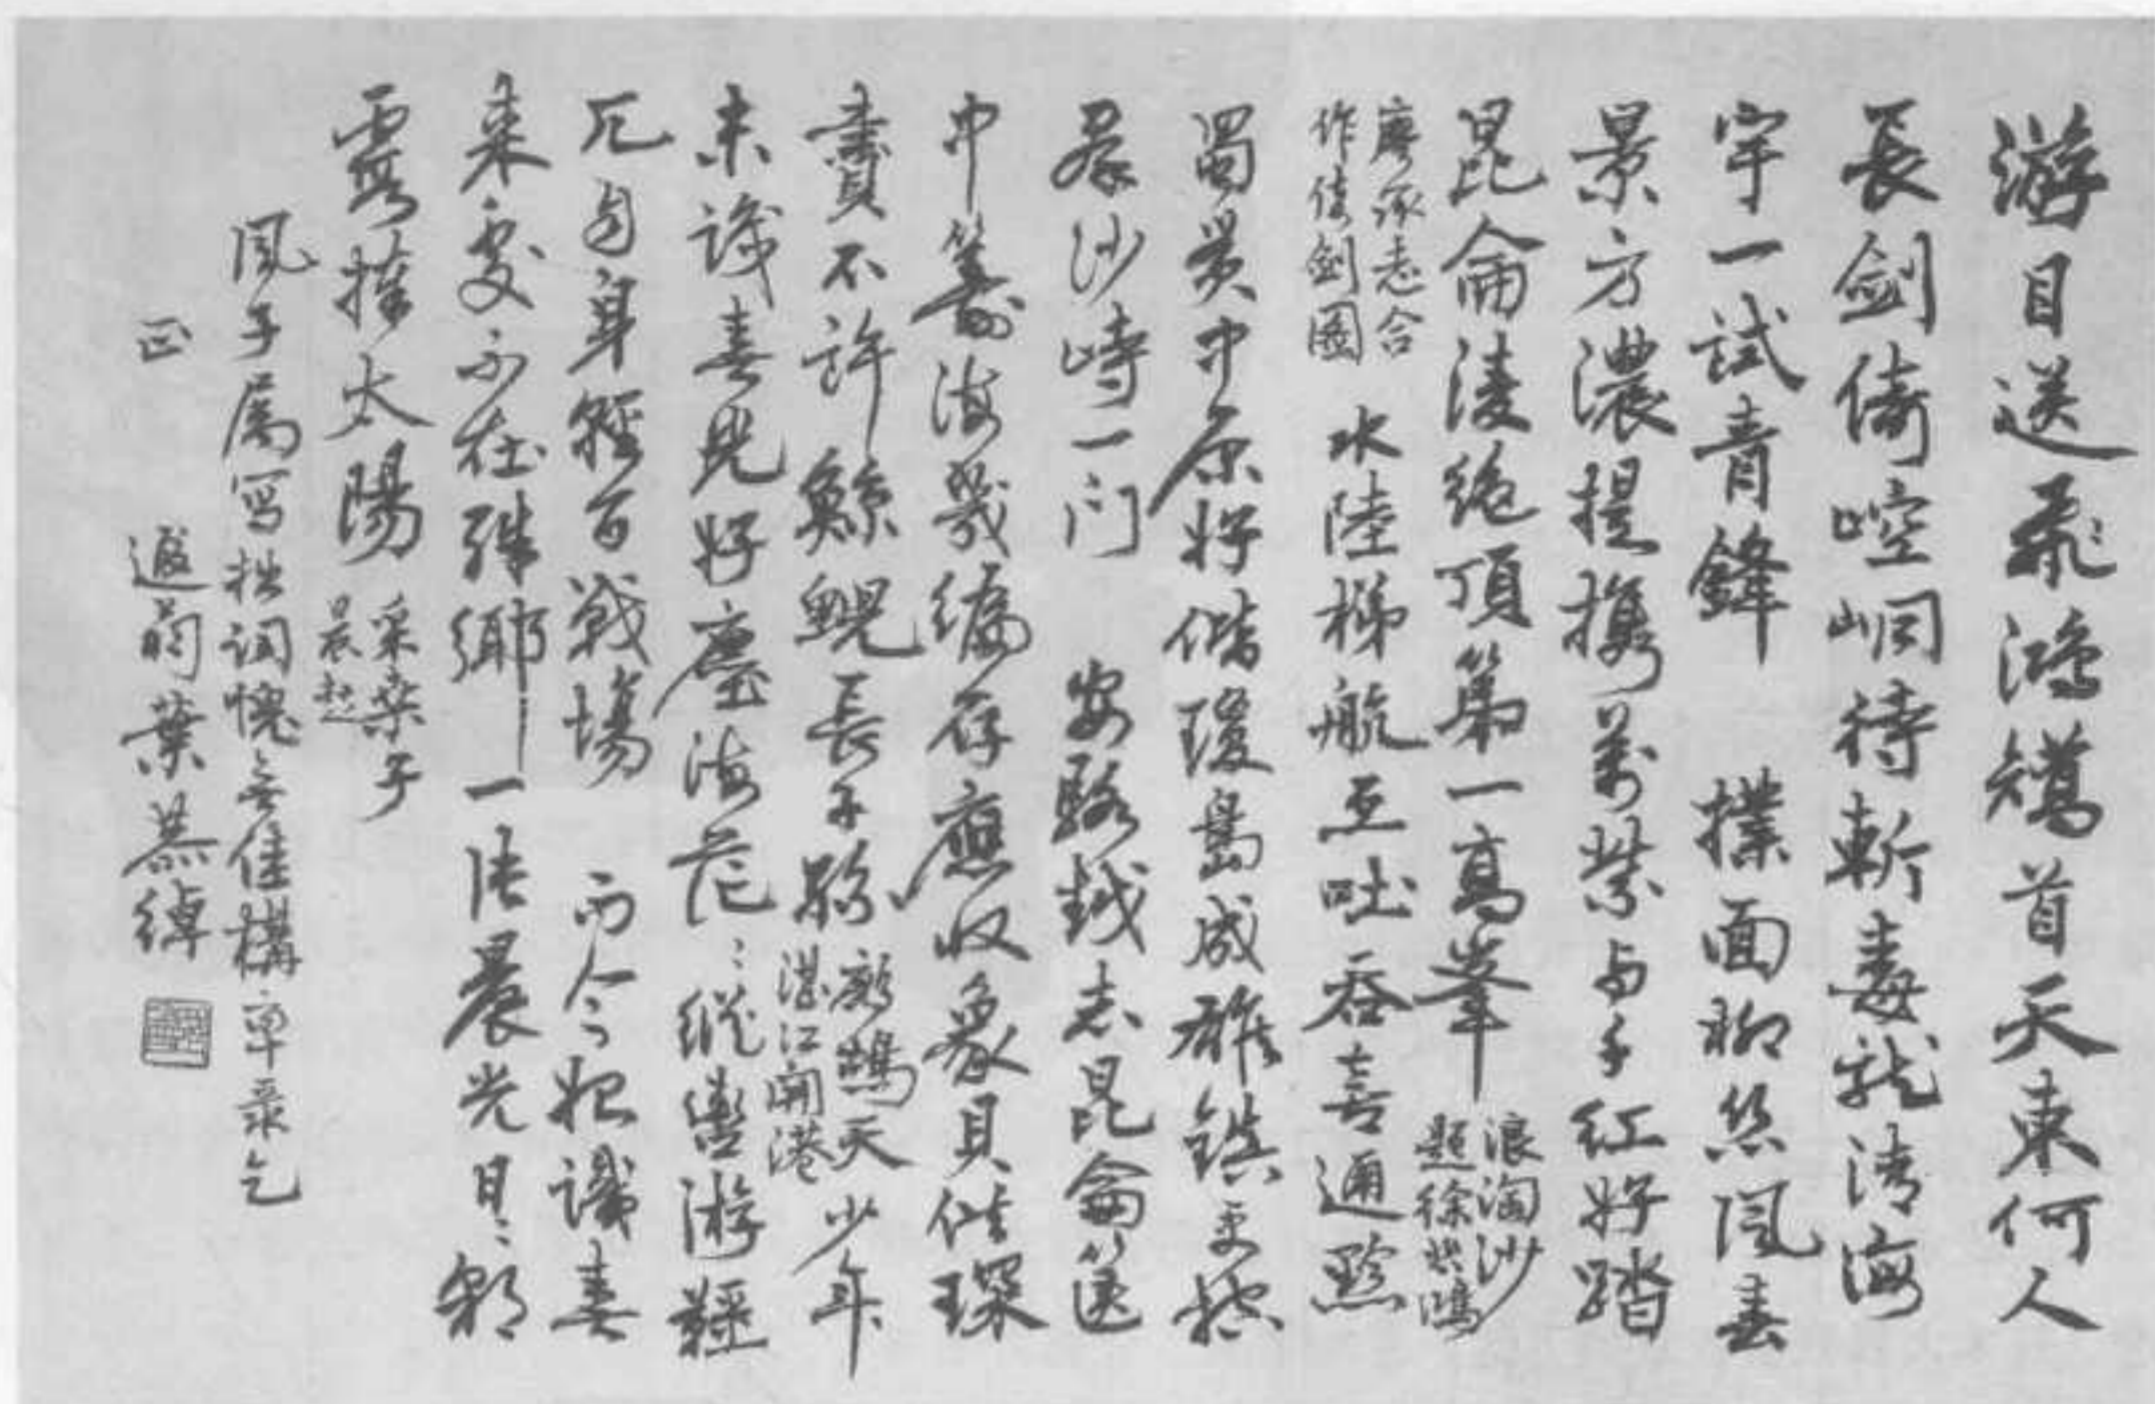 游目送飛鴻矯首天東何人
長劍倚崆峒待斬毒龍清海
宇一試青鋒　撲面柳絲風春
景方濃提攜萬紫与千紅好踏
昆侖淩絕頂第一高峯
浪淘沙
題徐悲鴻
廖承志合
作倚劍圖
水陸梯航互吐吞喜通黔
蜀貫中原好借瓊島成雄鎮更控
沙峙一门　安點越志昆侖篋
中籌海幾編存應收象貝借琛
賣不許鯨鯢長子孫
鷓鴣天
湛江開港
少年
未識春光好塵海茫〻縱轡游韁
兀自身經百戰場　而今始識春
來處不在殊鄉一法晨光日〻朝
霞擁太陽
采桑子
晨起
風子属写拙詞愧無佳構率录乞
正
遐菴葉恭綽